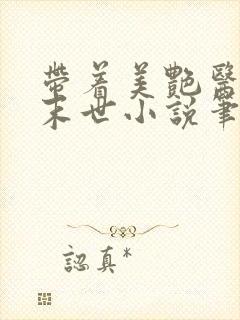 帶着美艷醫
末世小説筆
認真*